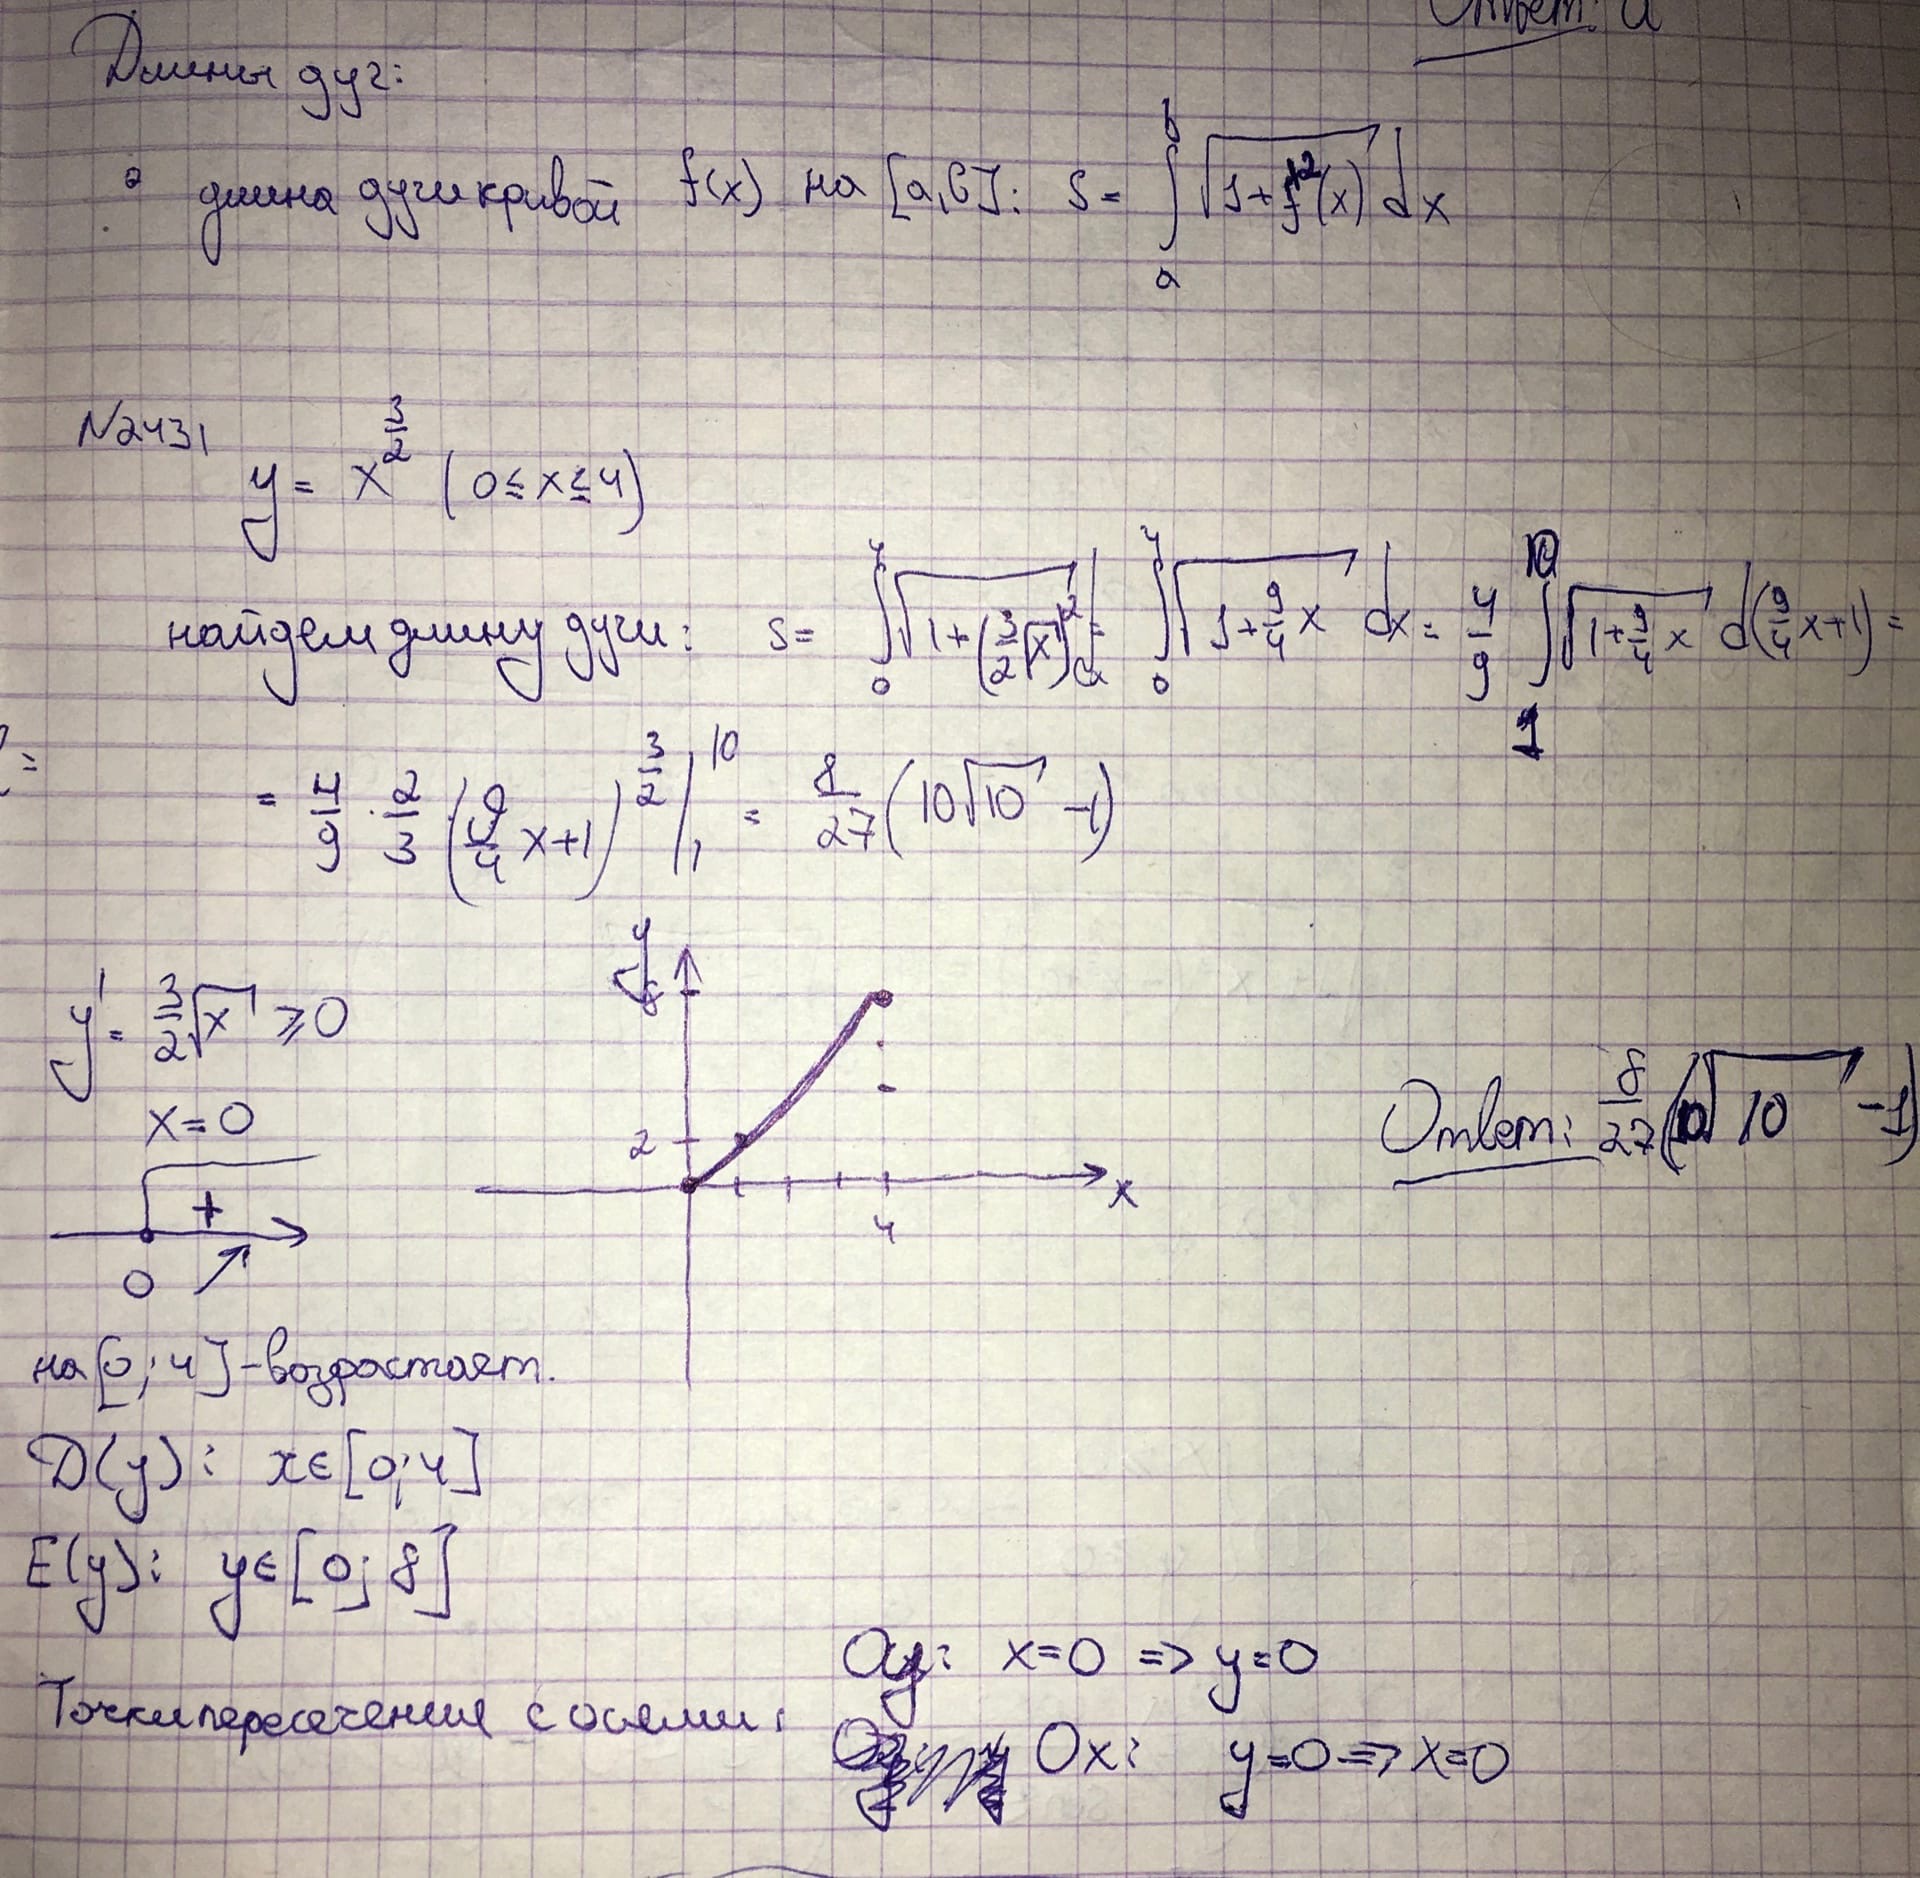 Ответ: a
Длины дуг:
длина дуги кривой f(x) на [a,b]: S = ∫_a^b √(1+f'²(x)) dx
N2431
y = x^(3/2) (0 ≤ x ≤ 4)
найдем длину дуги: S = ∫_0^4 √(1+(3/2 √x)²) dx = ∫_0^4 √(1+9/4 x) dx = 4/9 ∫_1^10 √(1+9/4 x) d(9/4 x+1) =
= 4/9 · 2/3 (9/4 x+1)^(3/2) |_1^10 = 8/27 (10√10 -1)
y' = 3/2 √x ≥ 0
x=0
+
0
y
8
2
4
x
Ответ: 8/27 (10√10 -1)
на [0; 4] - возрастает.
D(y): x∈[0; 4]
E(y): y∈[0; 8]
Точки пересечения с осями:
Oy: x=0 => y=0
Ox: y=0 => x=0